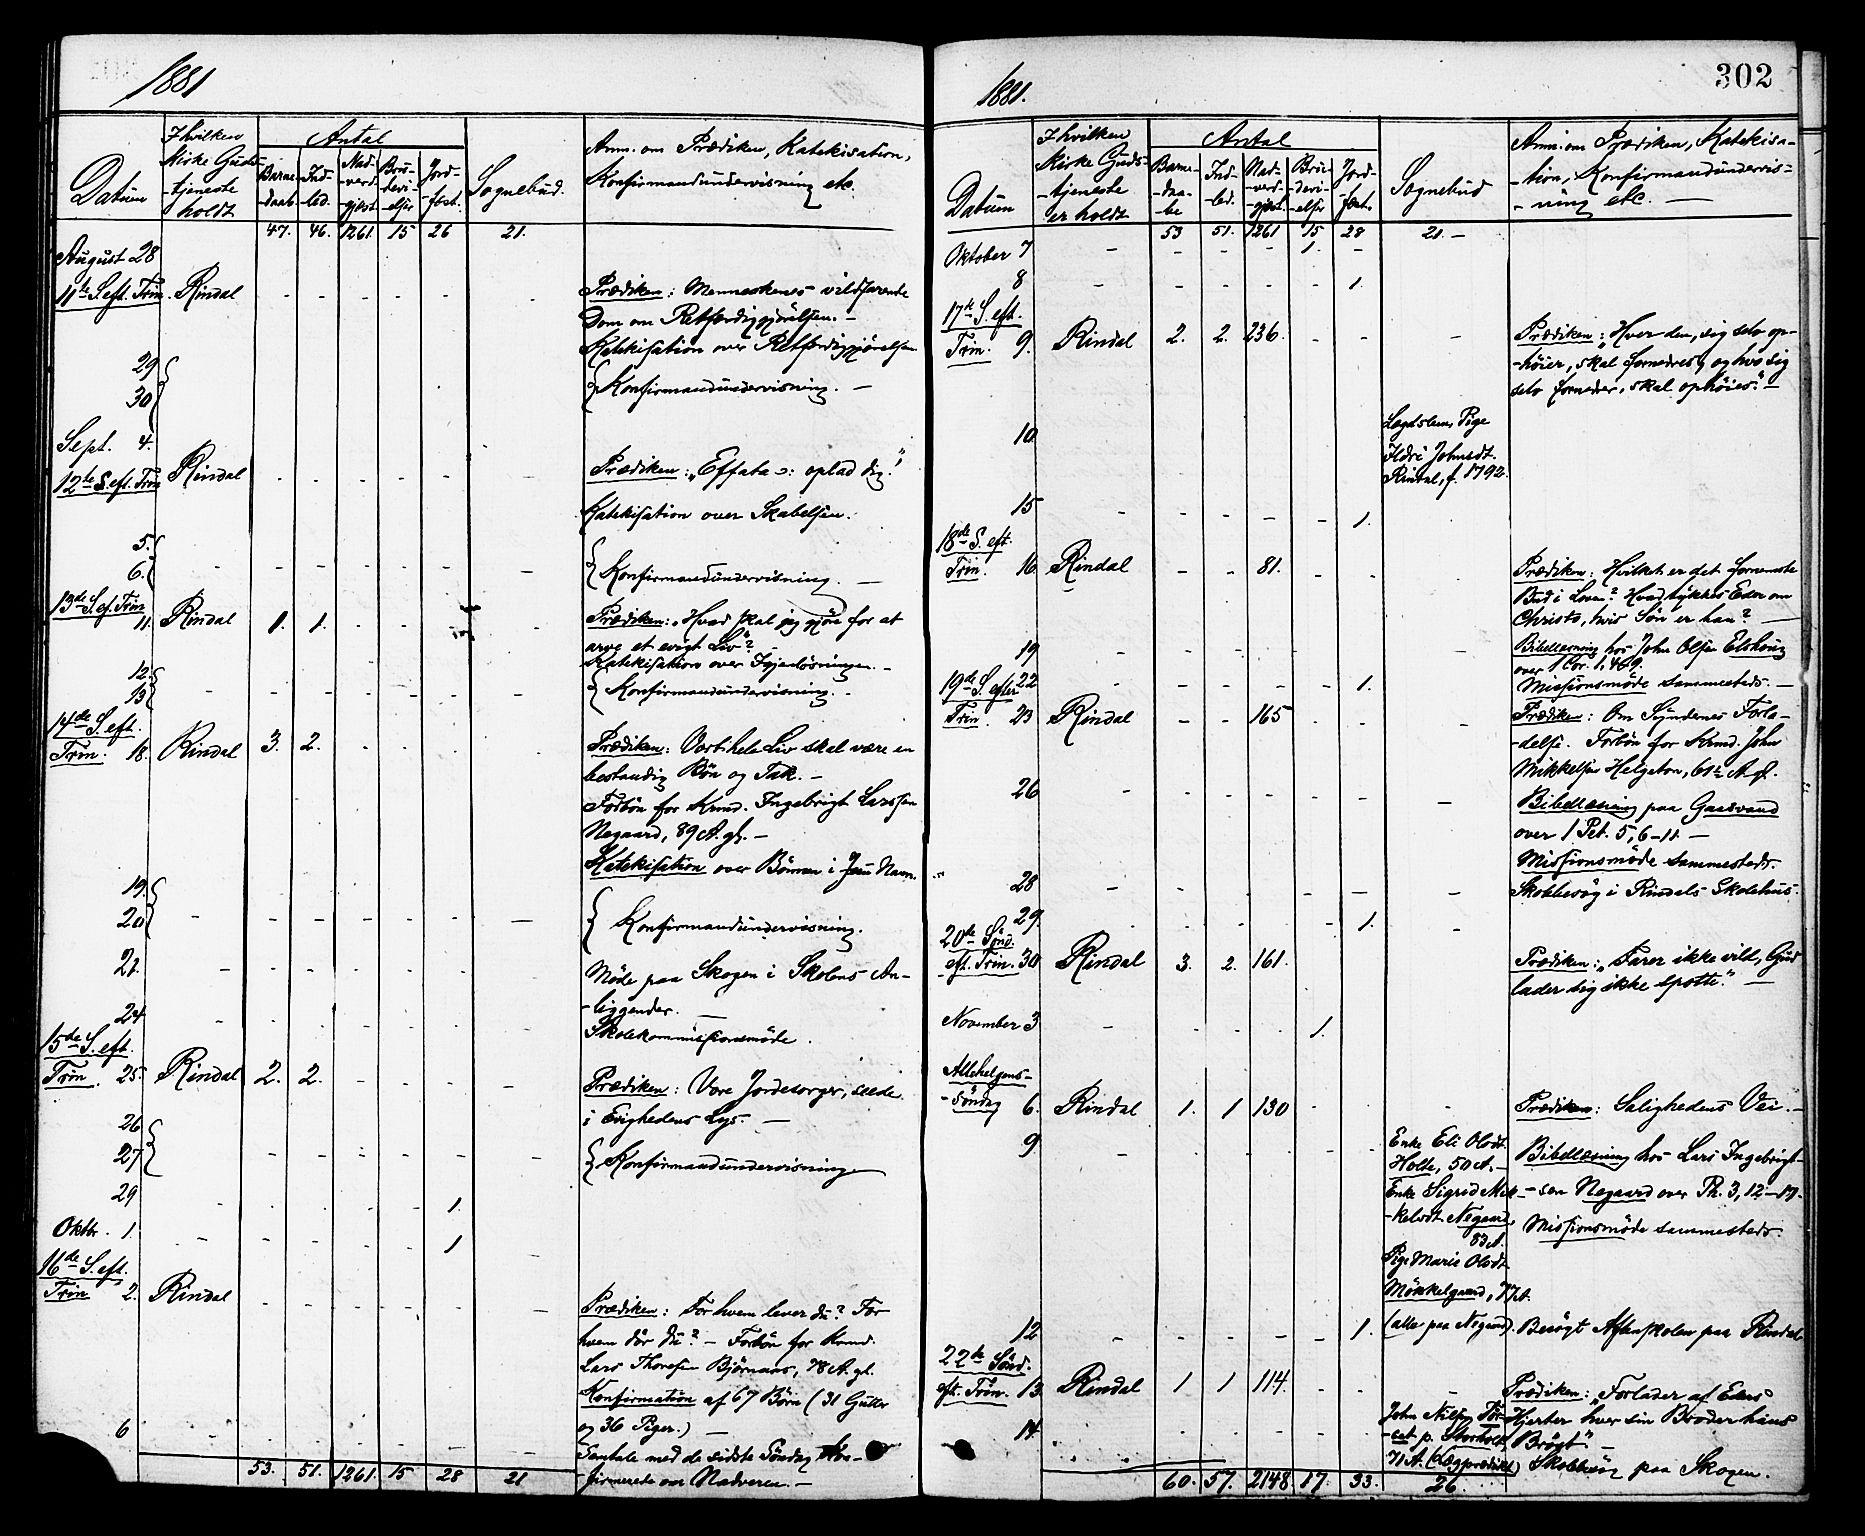 1881
Datum
I hvilken Kirke Guds-tjeneste holdt
Antal
Barne-daab. Ind-led. Nad-verd-gjest. Bru-devi-elser Jord-fæst.
Sognebud.
Anm. om Prædiken, Katekisation,
Konfirmandundervisning etc.
47. 46. 1261. 15 26 21.
August 28
11te S. eft. Trin. Rindal - - - - - -
Prædiken: Menneskenes vildfarende
Dom om Retfærdiggjørelsen. -
Katekisation over Retfærdiggjørelsen
29
30 } Konfirmandundervisning. -
Sept. 4.
12te S. eft. Trin Rindal - - - - - -
Prædiken: "Effata ɔ: oplad dig!"
Katekisation over Skabelsen.
5.
6. - - - - - - } Konfirmandundervisning. -
13de S. ef. Trin
11. Rindal 1. 1. - - - -
Prædiken: "Hvad skal jeg gjøre for at
arve et evigt Liv"? -
Katekisation over Igjenløsningen. -
12.
13 - - - - - - } Konfirmandundervisning. -
14de S. eft.
Trin. 18. Rindal 3. 2. - - - -
Prædiken: Vort hele Liv skal være en
bestandig Bøn og Tak. -
Forbøn for Kmd. Ingebrigt Larssen
Negaard, 89 A. gl. -
Katekisation over Bønnen i Jesu Navn.
19.
20 - - - - - - } Konfirmandundervisning.
22. - - - - - -
Møde paa Skogen i Skolens An-
-liggender. -
24 - - - - - - Skolekommissionsmøde.
15de S. eft.
Trin. 25. Rindal 2. 2. - - - -
Prædiken: Vore Jordesorger, seede
i Evighedens Lys. -
26
27 - - - - - - } Konfirmandundervisning
29 - - - - 1. -
Oktbr. 1. - - - - 1 -
16de S. eft.
Trin 2. Rindal - - - - - -
Prædiken: For hvem lever du? For
hvem dør du? - Forbøn for Kmd.
Lars Thoresen Bjørnaas, 78 A. gl.
Konfirmation af 67 Børn (31 Gutter
og 36 Piger.) -
6 - - - - - -
Samtale med de sidste Søndag Kon-
-firmerede om Nadveren. -
53. 51. 1261. 15 28 21
1881.
302
Datum
I hvilken Kirke Guds-tjeneste er holdt
Antal
Barne-daa-be Ind-led. Nad-verd-gjest. Bru-devi-elser Jord-fæst.
Sognebud
Anm. om Prædiken, Katekisa-
-tion, Konfirmandundervis-
-ning etc. -
53 51. 1261 15 28 21. -
Oktober 7 - - - - 1. - -
8 - - - - - 1.
17de S. eft.
Trin. 9. Rindal 2. 2. 236. - - -
Prædiken: "Hver den, sig selv op-
-høier, skal fornedres, og hvo sig
selv fornedrer, skal ophøies." -
10
Lægdslem, Pige
Ildri Johnsdt.
Rindal, f. 1792.
15 - - - - - 1.
18de S. eft.
Trin. 16. Rindal - - 81. - - -
Prædiken: Hvilket er det fornemste
Bud i Loven? Hvad tykkes Eder om
Christo, hvis Søn er han? -
19 - - - - - - -
Bibellæsning hos John Olsen Elshoug
over 1 Cor. 1. 4-9.
Missionsmøde sammesteds. -
19de S. efter 22 - - - - - 1. -
Trin. 23 Rindal - - 165 - - -
Prædiken: Om Syndenes Forla-
-delse. Forbøn for Kmd. John
Mikkelsen Helgeton, 61 A. gl.
26 - - - - - - -
Bibellæsning paa Gaasvand
over 1 Pet. 5, 6-11. -
Missionsmøde sammesteds.
28 - - - - - - - Skolebesøg i Rindals Skolehus.
29. - - - - - 1. -
20de Sønd.
eft. Trin. 30 Rindal 3. 2. 161.
Prædiken: "Farer ikke vild, Gud
lader sig ikke spotte." -
November 3 - - - - 1.
Allehelgens-
-søndag 6. Rindal 1. 1 130 - - - - Prædiken: Salighedens Vei. -
9 - - - - - -
Enke Eli Olsdt.
Holte, 50 A. -
Enke Sigrid Mik-
-kelsdt Negaard,
83 A.
Pige Marie Olsdt.
Mønkelgaard, 77 A.
(alle paa Negaard).
Bibellæsning hos Lars Ingebrigt-
-sen Negaard over Ph. 3, 12-17.
Missionsmøde sammesteds.
12 - - - - - 1. Besøgt Aftenskolen paa Rindal
22de Sønd.
eft. Trin. 13. Rindal 1 1 114. - - - -
Prædiken: "Forlader af Eders
Hjerter hver sin Broder hans
Brøst" -
14. - - - - - -
John Nilsen
p.
71 A. (Lægprædikt)
Skolebesøg paa Skogen.
60. 57. 2148. 17. 33. 26.